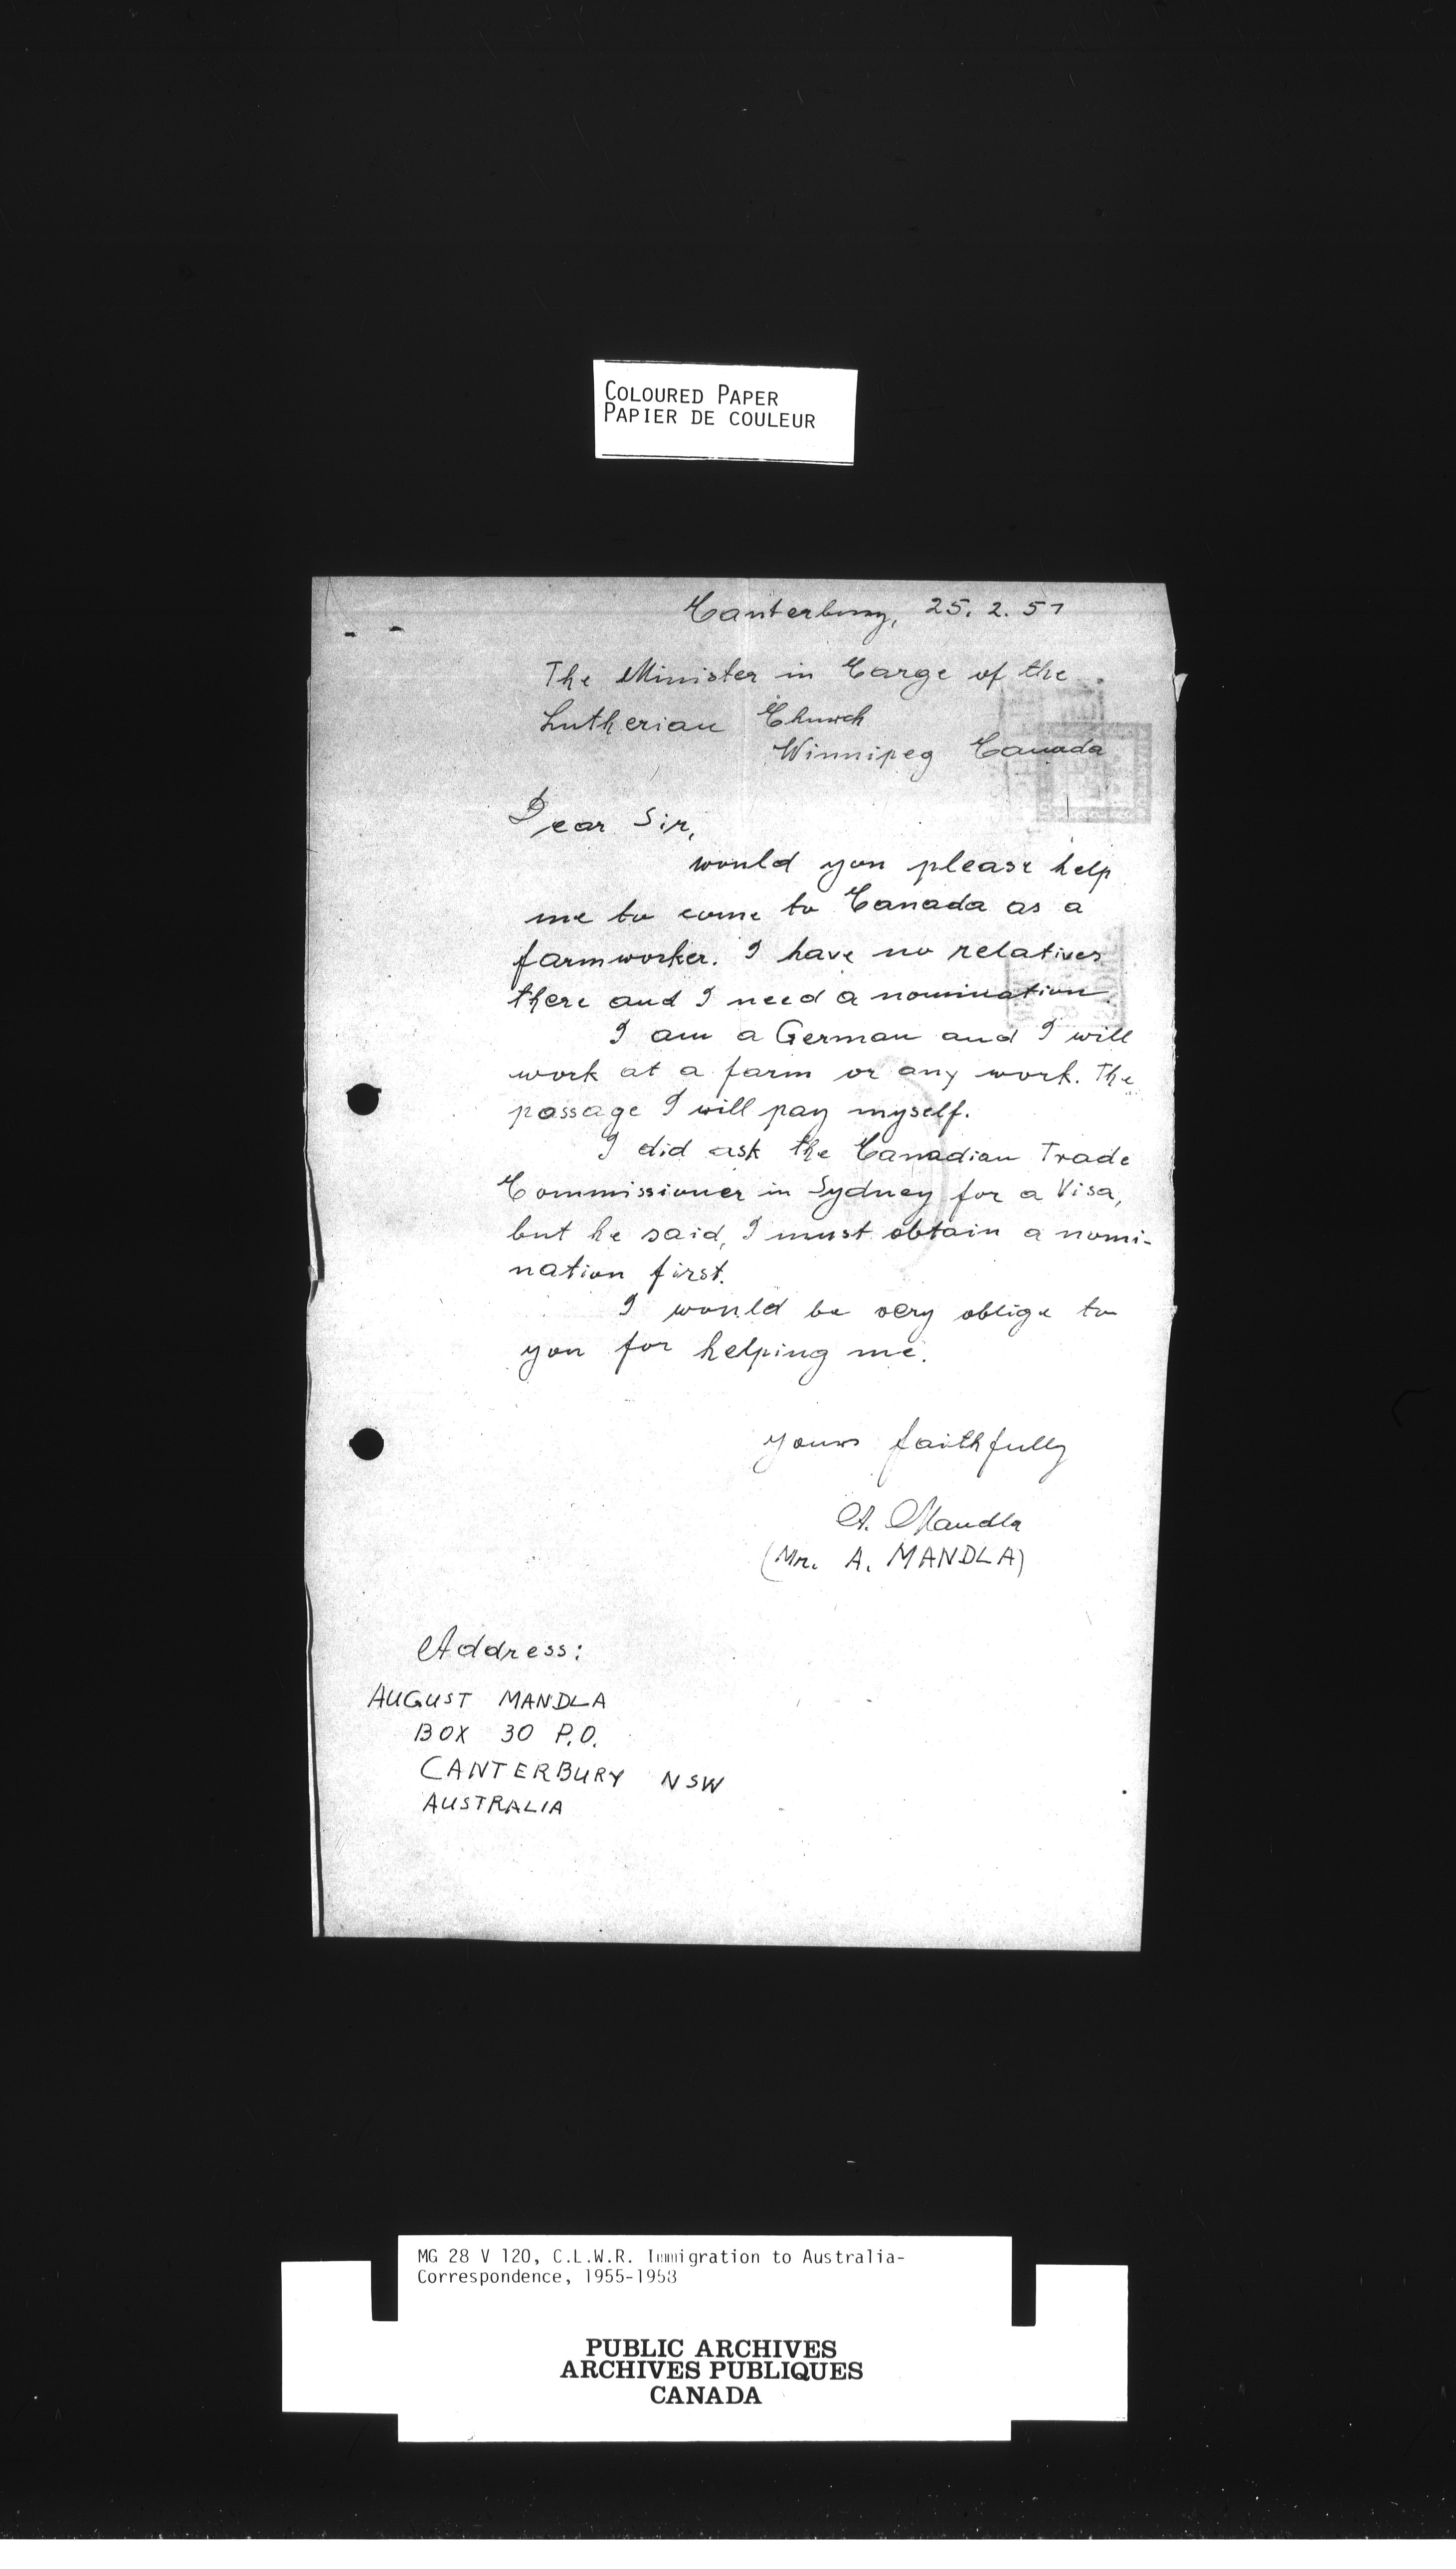 COLOURED PAPER
PAPIER DE COULEUR
Canterbury, 25. 2. 57
The Minister in Carge of the
Lutherian Church
Winnipeg Canada
Dear Sir,
would you please help
me to come to Canada as a
farmworker. I have no relatives
there and I need a nomination.
I am a German and I will
work at a farm or any work. The
passage I will pay myself.
I did ask the Canadian Trade
Commissioner in Sydney for a Visa,
but he said, I must obtain a nomi-
nation first.
I would be very oblige to
you for helping me.
yours faithfully
A. Mandla
(Mr. A. MANDLA)
Address:
AUGUST MANDLA
BOX 30 P.O.
CANTERBURY NSW
AUSTRALIA
MG 28 V 120, C.L.W.R. Immigration to Australia-
Correspondence, 1955-1958
PUBLIC ARCHIVES
ARCHIVES PUBLIQUES
CANADA